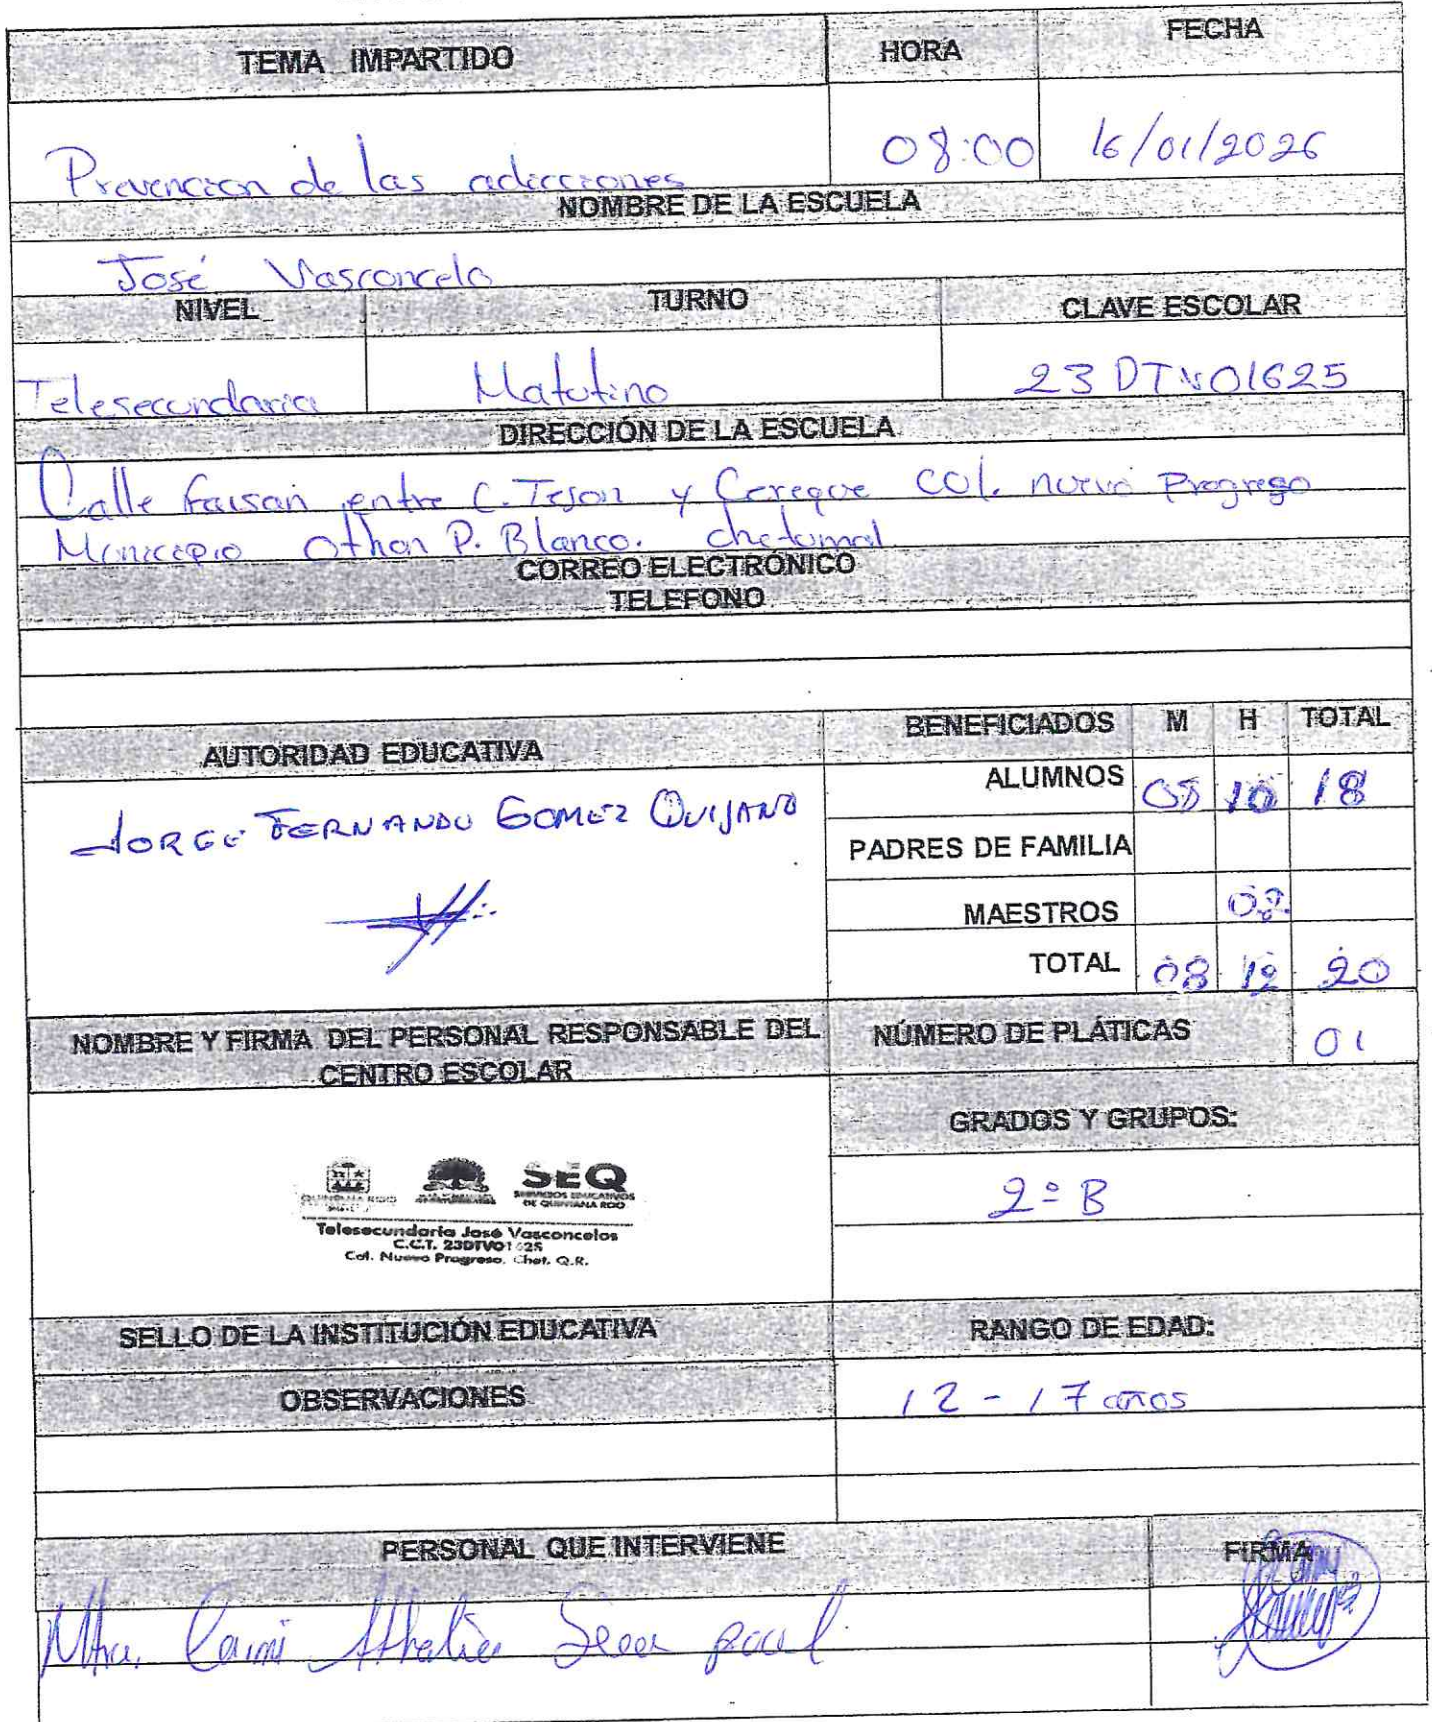 TEMA IMPARTIDO HORA FECHA
Prevencion de las adicciones 08:00 16/01/2026
NOMBRE DE LA ESCUELA
José Vasconcelo
NIVEL TURNO CLAVE ESCOLAR
Telesecundaria Matutino 23DTV01625
DIRECCIÓN DE LA ESCUELA
Calle faisan entre C. Tejon y Cereque COl. nuevo Progreso
Municipio Othon P. Blanco. chetumal
CORREO ELECTRÓNICO
TELEFONO
AUTORIDAD EDUCATIVA BENEFICIADOS M H TOTAL
JORGE FERNANDO GOMEZ QUIJANO
ALUMNOS 08 10 18
PADRES DE FAMILIA
MAESTROS 02
TOTAL 08 12 20
NOMBRE Y FIRMA DEL PERSONAL RESPONSABLE DEL
CENTRO ESCOLAR
NÚMERO DE PLÁTICAS 01
GRADOS Y GRUPOS:
2º B
QUINTANA ROO
SEQ
SERVICIOS EDUCATIVOS
DE QUINTANA ROO
Telesecundaria José Vasconcelos
C.C.T. 23DTV01625
Col. Nuevo Progreso, Chet. Q.R.
SELLO DE LA INSTITUCIÓN EDUCATIVA RANGO DE EDAD:
OBSERVACIONES 12 - 17 años
PERSONAL QUE INTERVIENE FIRMA
Mtra.